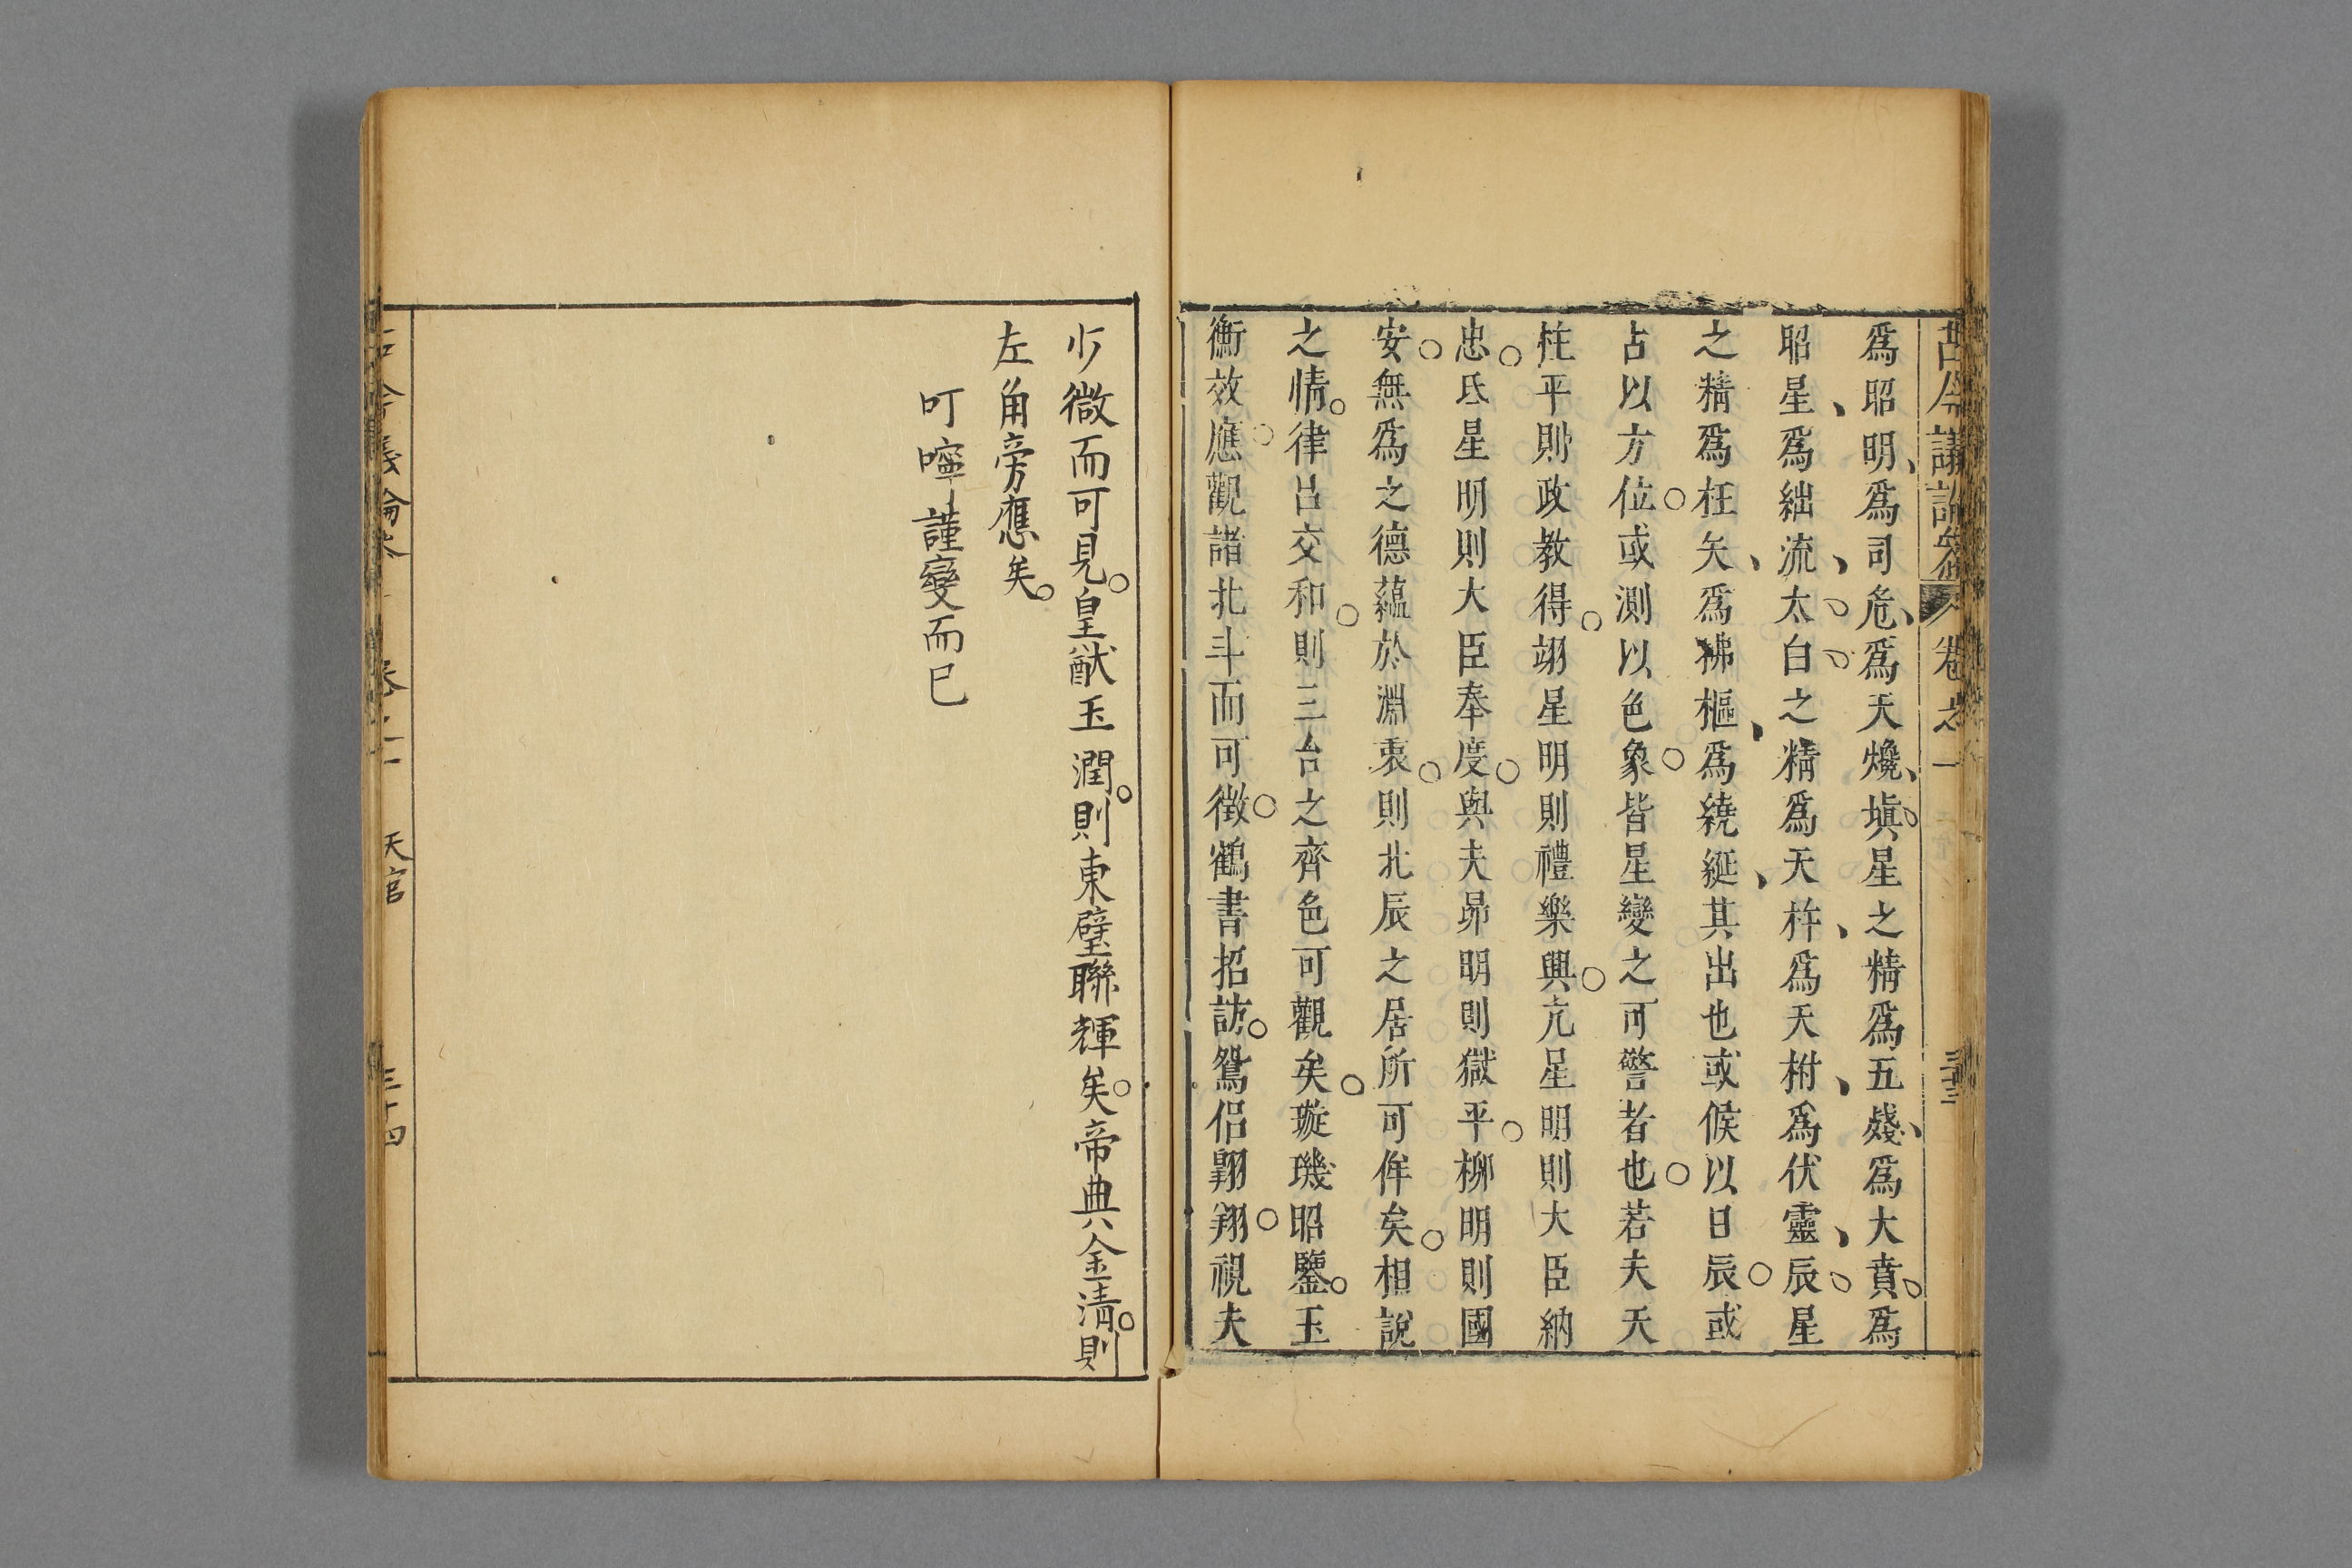 古今議論參 卷之一 三十三
爲昭明爲司危爲天欃塡星之精爲五殘爲大賁爲
昭星爲絀流太白之精爲天杵爲天柎爲伏靈辰星
之精爲枉矢爲拂樞爲繞綖其出也或候以日辰或
占以方位或測以色象皆星變之可警者也若夫天
柱平則政教得翊星明則禮樂興亢星明則大臣納
忠氐星明則大臣奉度與夫昴明則獄平柳明則國
安無爲之德蘊於淵衷則北辰之居所可侔矣相說
之情律呂交和則三台之齊色可觀矣璇璣昭鑒玉
衡效應觀諸北斗而可徵鶴書招訪鴛侶翺翔視夫
少微而可見皇猷玉潤則東璧聯輝矣帝典金清則
左角旁應矣
叮嚀謹變而已
古今議論參 卷之一 天官 三十四